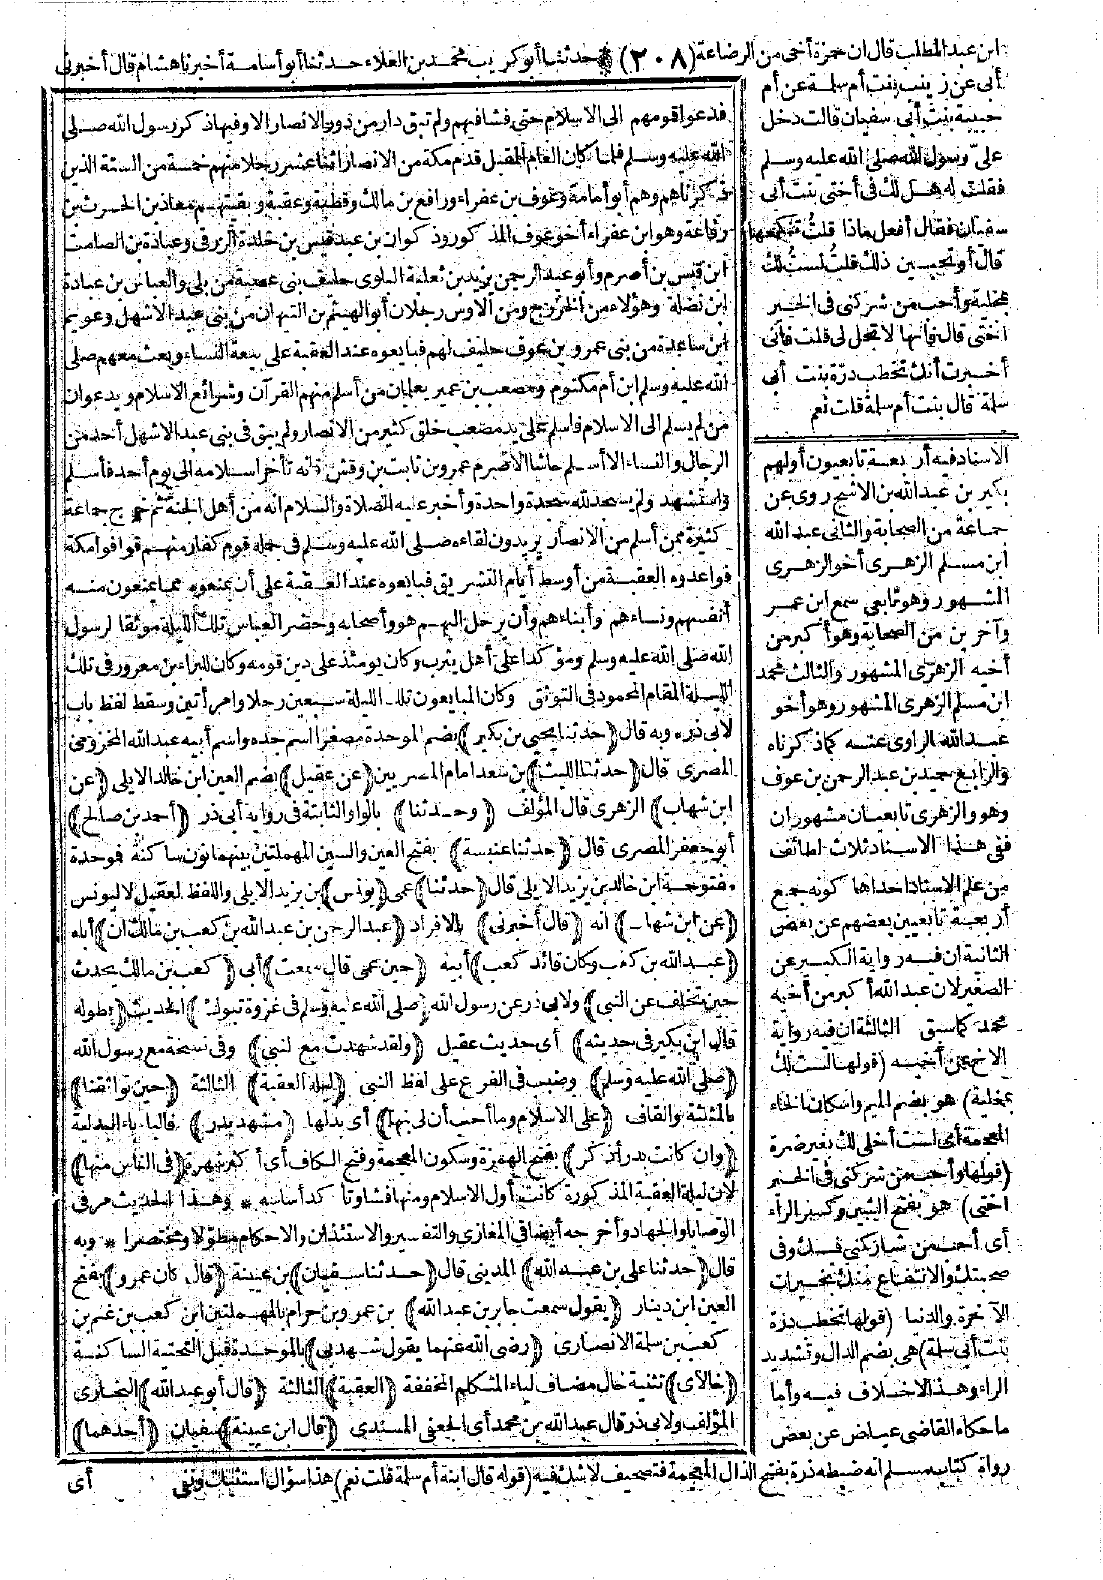 ابن عبد المطلب قال ان حمزة أخى من الرضاعة (٢٠٨) حدثنا أبو كريب محمد بن العلاء حدثنا أبو أسامة أخبرنا هشام قال أخبرنى
أبى عن زينب بنت أم سلمة عن أم
حبيبة بنت أبى سفيان قالت دخل
علىّ رسول الله صلى الله عليه وسلم
فقلت له هل لك فى أختى بنت أبى
سفيان فقال أفعل ماذا قلت تنكحها
قال أو تحبين ذلك قلت لست لك
بمخلية وأحب من شركنى فى الخير
أختى قال فانها لا تحل لى قلت فانى
أخبرت أنك تخطب درّة بنت أبى
سلمة قال بنت أم سلمة قلت نعم
الاسناد فيه أربعة تابعيون أولهم
بكير بن عبد الله بن الاشج روى عن
جماعة من الصحابة والثانى عبد الله
ابن مسلم الزهرى أخو الزهرى
المشهور وهو تابعى سمع ابن عمر
وآخرين من الصحابة وهو أكبر من
أخيه الزهرى المشهور والثالث محمد
ابن مسلم الزهرى المشهور وهو أخو
عبد الله الراوى عنه كما ذكرناه
والرابع حميد بن عبد الرحمن بن عوف
وهو والزهرى تابعيان مشهوران
ففى هذا الاسناد ثلاث لطائف
من علم الاسناد احداها كونه جمع
أربعة تابعيين بعضهم عن بعض
الثانية ان فيه رواية الكبير عن
الصغير لان عبد الله أكبر من أخيه
محمد كما سبق الثالثة ان فيه رواية
الاخ عن أخيه (قولها لست لك
بمخلية) هو بضم الميم واسكان الخاء
المعجمة أى لست أخلى لك بغير ضرة
(قولها وأحب من شركنى فى الخير
أختى) هو بفتح الشين وكسر الراء
أى أحب من شاركنى فيك وفى
صحبتك والانتفاع منك بخيرات
الآخرة والدنيا (قولها تخطب درّة
بنت أبى سلمة) هى بضم الدال وتشديد
الراء وهذا لا خلاف فيه وأما
ما حكاه القاضى عياض عن بعض
رواة كتاب مسلم انه ضبطه ذرة بفتح الذال المعجمة فتصحيف لا شك فيه (قوله قال ابنة أم سلمة قلت نعم) هذا سؤال استثبات ونفى
فدعوا قومهم الى الاسلام حتى فشا فيهم ولم تبق دار من دور الانصار الا وفيها ذكر رسول الله صلى
الله عليه وسلم فلما كان العام المقبل قدم مكة من الانصار اثنا عشر رجلا منهم خمسة من الستة الذين
ذكرناهم وهم أبو أمامة وعوف بن عفراء ورافع بن مالك وقطبة وعقبة وبقيتهم معاذ بن الحرث بن
رفاعة وهو ابن عفراء أخو عوف المذكور وذكوان بن عبد قيس بن خلدة الزرقى وعبادة بن الصامت
ابن قيس بن أصرم وأبو عبد الرحمن يزيد بن ثعلبة البلوى حليف بنى عصية من بلى والعباس بن عبادة
ابن نضلة وهؤلاء من الخزرج ومن الاوس رجلان أبو الهيثم بن التيهان من بنى عبد الاشهل وعويم
ابن ساعدة من بنى عمرو بن عوف حليف لهم فبايعوه عند العقبة على بيعة النساء وبعث معهم صلى
الله عليه وسلم ابن أم مكتوم ومصعب بن عمير يعلمان من أسلم منهم القرآن وشرائع الاسلام ويدعوان
من لم يسلم الى الاسلام فأسلم على يد مصعب خلق كثير من الانصار ولم يبق فى بنى عبد الاشهل أحد من
الرجال والنساء الا أسلم حاشا الاصيرم عمرو بن ثابت بن وقش فانه تأخر اسلامه الى يوم أحد فأسلم
واستشهد ولم يسجد لله سجدة واحدة وأخبر عليه الصلاة والسلام انه من أهل الجنة ثم خرج جماعة
كثيرة ممن أسلم من الانصار يريدون لقاءه صلى الله عليه وسلم فى جملة قوم كفار منهم فوافوا مكة
فواعدوه العقبة من أوسط أيام التشريق فبايعوه عند العقبة على أن يمنعوه مما يمنعون منه
أنفسهم ونساءهم وأبناءهم وأن يرحل اليهم هو وأصحابه وحضر العباس تلك الليلة موثقا لرسول
الله صلى الله عليه وسلم ومؤكدا على أهل يثرب وكان يومئذ على دين قومه وكان للبراء بن معرور فى تلك
الليلة المقام المحمود فى التوثق وكان المبايعون تلك الليلة سبعين رجلا وامرأتين وسقط لفظ باب
لأبى ذر \* وبه قال (حدثنا يحيى بن بكير) بضم الموحدة مصغرا اسم جده واسم أبيه عبد الله المخزومى
المصرى قال (حدثنا الليث) بن سعد امام المصريين (عن عقيل) بضم العين ابن خالد الايلى (عن
ابن شهاب) الزهرى قال المؤلف (وحدثنا) بالواو الثابتة فى رواية أبى ذر (أحمد بن صالح)
أبو جعفر المصرى قال (حدثنا عنبسة) بفتح العين والسين المهملتين بينهما نون ساكنة فموحدة
مفتوحة ابن خالد بن يزيد الايلى قال (حدثنا) عمى (يونس) بن يزيد الايلى واللفظ لعقيل لا ليونس
(عن ابن شهاب) انه (قال أخبرنى) بالافراد (عبد الرحمن بن عبد الله بن كعب بن مالك ان) أباه
(عبد الله بن كعب وكان قائد كعب) أبيه (حين عمى قال سمعت) أبى (كعب بن مالك يحدث
حين تخلف عن النبى) ولابى ذر عن رسول الله (صلى الله عليه وسلم فى غزوة تبوك) الحديث (بطوله
قال ابن بكير فى حديثه) أى حديث عقيل (ولقد شهدت مع النبى) وفى نسخة مع رسول الله
(صلى الله عليه وسلم) وضبب فى الفرع على لفظ النبى (ليلة العقبة) الثالثة (حين تواثقنا)
بالمثلثة والقاف (على الاسلام وما أحب أن لى بها) أى بدلها (مشهد بدر) فالباء باء البدلية
(وان كانت بدر أذكر) بفتح الهمزة وسكون المعجمة وفتح الكاف أى أكثر شهرة (فى الناس منها)
لان ليلة العقبة المذكورة كانت أول الاسلام ومنها فشا وتأكد أساسه \* وهذا الحديث مر فى
الوصايا والجهاد وأخرجه أيضا فى المغازى والتفسير والاستئذان والاحكام مطوّلا ومختصرا \* وبه
قال (حدثنا على بن عبد الله) المدينى قال (حدثنا سفيان) بن عيينة (قال كان عمرو) بفتح
العين ابن دينار (يقول سمعت جابر بن عبد الله) بن عمرو بن حرام بالمهملتين ابن كعب بن غنم بن
كعب بن سلمة الانصارى (رضى الله عنهما يقول شهد بى) بالموحدة قبل التحتية الساكنة
(خالاى) تثنية خال مضاف لياء المتكلم المخففة (العقبة) الثالثة (قال أبو عبد الله) البخارى
المؤلف ولابى ذر قال عبد الله بن محمد أى الجعفى المسندى (قال ابن عيينة) سفيان (أحدهما)
أى